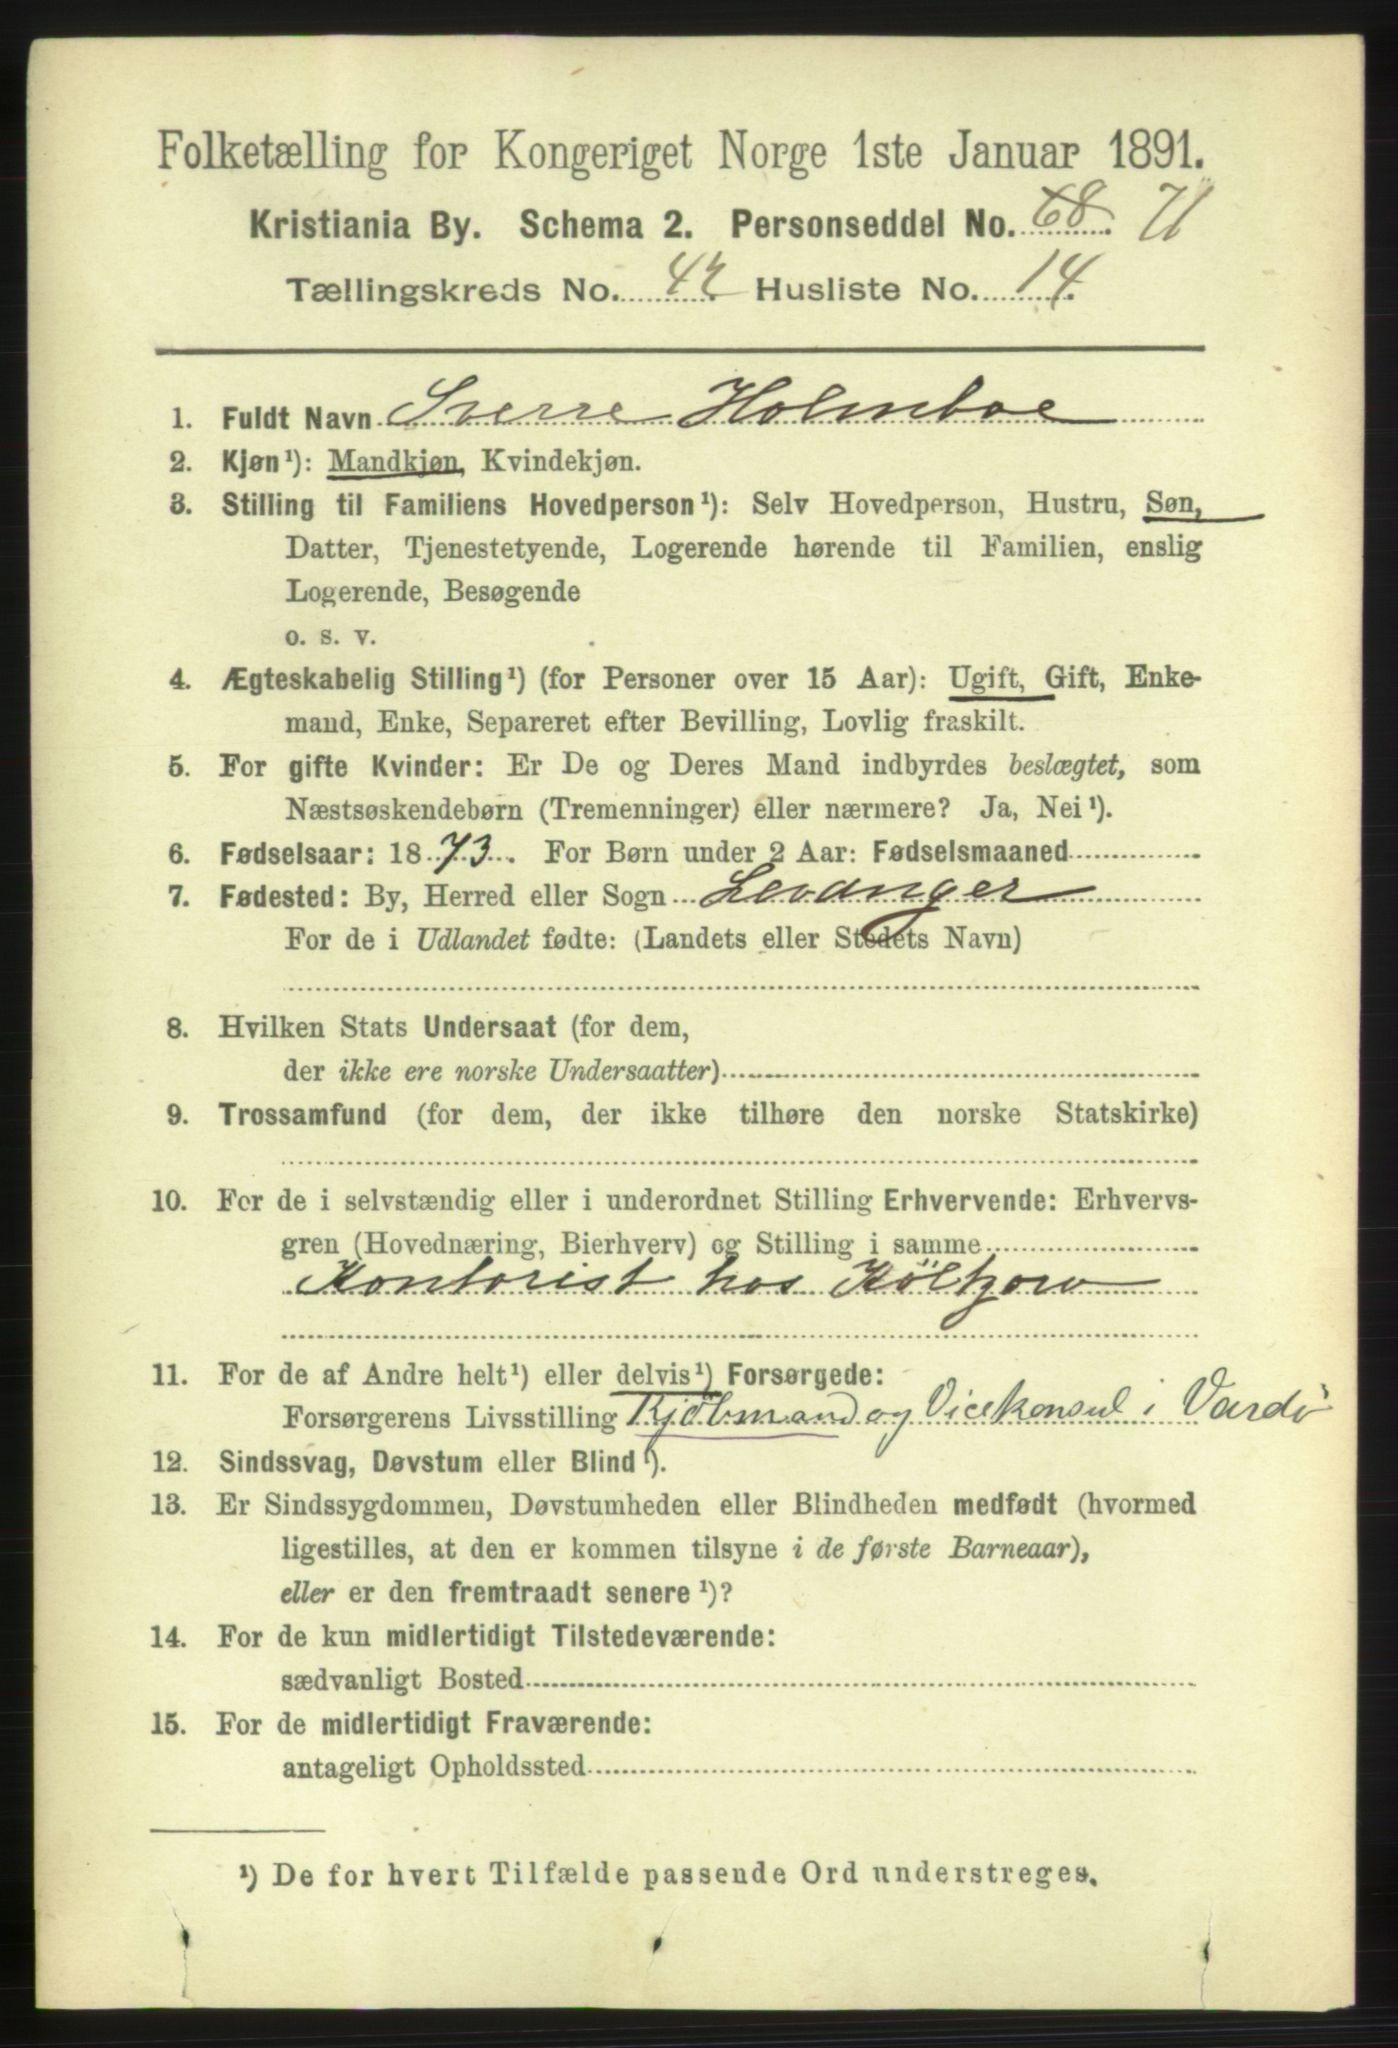 Folketælling for Kongeriget Norge 1ste Januar 1891.
Kristiania By. Schema 2. Personseddel No. 68. 71
Tællingskreds No. 42 Husliste No. 14.
1. Fuldt Navn Sverre Holmboe
2. Kjøn¹): Mandkjøn, Kvindekjøn.
3. Stilling til Familiens Hovedperson¹): Selv Hovedperson, Hustru, Søn,
Datter, Tjenestetyende, Logerende hørende til Familien, enslig
Logerende, Besøgende
o. s. v.
4. Ægteskabelig Stilling¹) (for Personer over 15 Aar): Ugift, Gift, Enke-
mand, Enke, Separeret efter Bevilling, Lovlig fraskilt.
5. For gifte Kvinder: Er De og Deres Mand indbyrdes beslægtet, som
Næstsøskendebørn (Tremenninger) eller nærmere? Ja, Nei¹).
6. Fødselsaar: 1873. For Børn under 2 Aar: Fødselsmaaned
7. Fødested: By, Herred eller Sogn Levanger
For de i Udlandet fødte: (Landets eller Stedets Navn)
8. Hvilken Stats Undersaat (for dem,
der ikke ere norske Undersaatter)
9. Trossamfund (for dem, der ikke tilhøre den norske Statskirke)
10. For de i selvstændig eller i underordnet Stilling Erhvervende: Erhvervs-
gren (Hovednæring, Bierhverv) og Stilling i samme
Kontorist hos
11. For de af Andre helt¹) eller delvis¹) Forsørgede:
Forsørgerens Livsstilling Kjöbmand og Vicekonsul i Vardö
12. Sindssvag, Døvstum eller Blind¹).
13. Er Sindssygdommen, Døvstumheden eller Blindheden medfødt (hvormed
ligestilles, at den er kommen tilsyne i de første Barneaar),
eller er den fremtraadt senere¹)?
14. For de kun midlertidigt Tilstedeværende:
sædvanligt Bosted
15. For de midlertidigt Fraværende:
antageligt Opholdssted
¹) De for hvert Tilfælde passende Ord understreges.